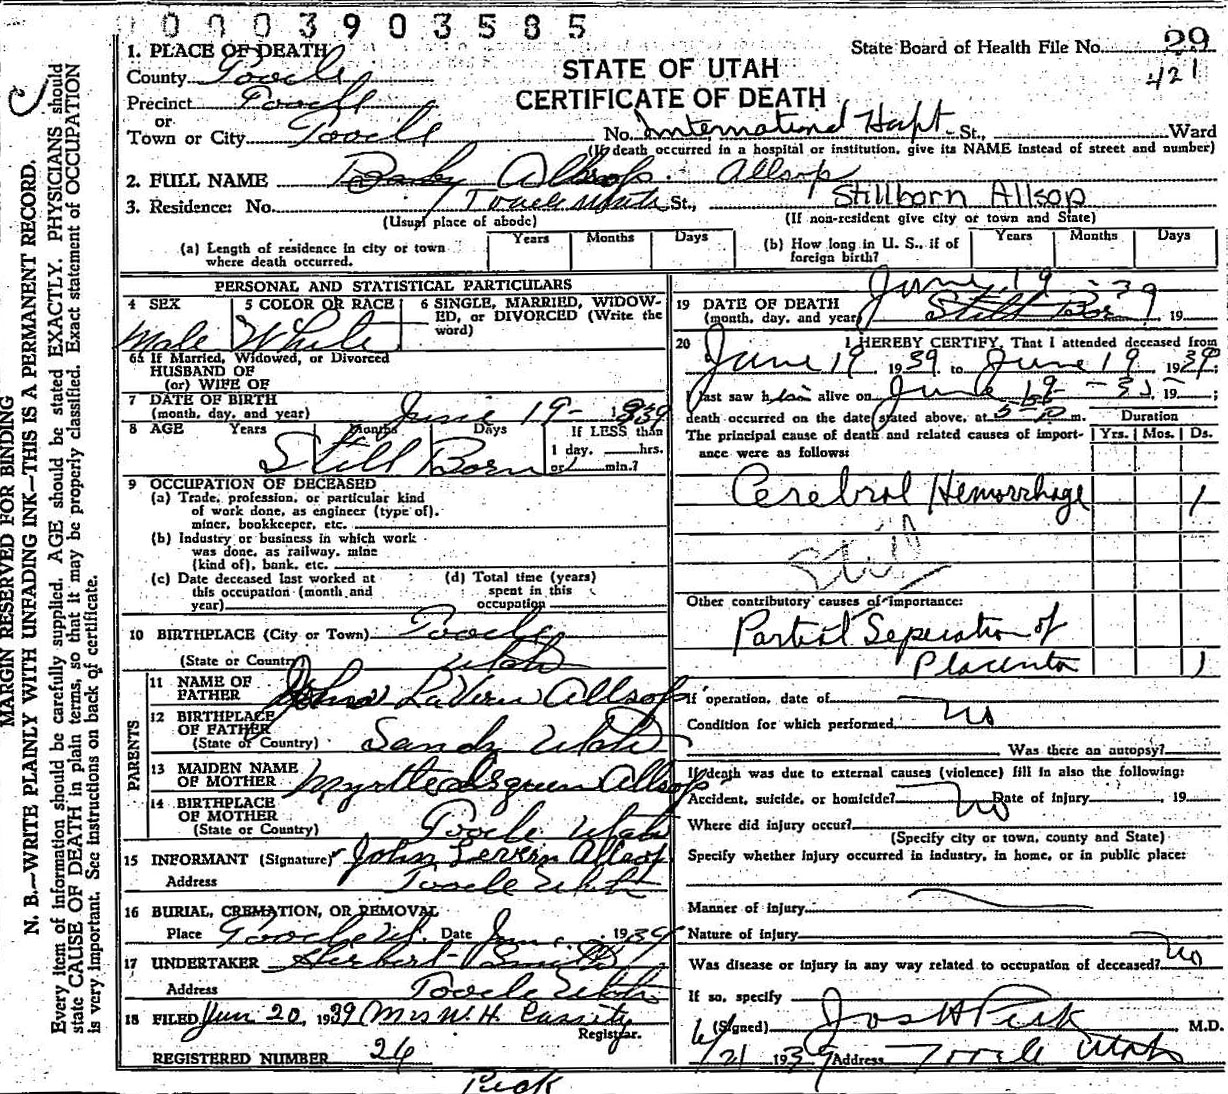 0 0 0 3 9 0 3 5 8 5
State Board of Health File No. 29
421
STATE OF UTAH
CERTIFICATE OF DEATH
1. PLACE OF DEATH
County Tooele
Precinct Tooele
or
Town or City Tooele No. International Hspt. St., Ward
(If death occurred in a hospital or institution, give its NAME instead of street and number)
2. FULL NAME Baby Allsop. Allsop
Stillborn Allsop
3. Residence: No. Tooele Utah St.,
(Usual place of abode) (If non-resident give city or town and State)
(a) Length of residence in city or town where death occurred. Years Months Days
(b) How long in U. S., if of foreign birth? Years Months Days
PERSONAL AND STATISTICAL PARTICULARS
4 SEX Male
5 COLOR OR RACE White
6 SINGLE, MARRIED, WIDOWED, or DIVORCED (Write the word)
6a If Married, Widowed, or Divorced
HUSBAND OF
(or) WIFE OF
7 DATE OF BIRTH
(month, day, and year) June 19- 1939
8 AGE Years Months Days If LESS than
Still Born 1 day, hrs.
or min.?
9 OCCUPATION OF DECEASED
(a) Trade, profession, or particular kind
of work done, as engineer (type of),
miner, bookkeeper, etc.
(b) Industry or business in which work
was done, as railway, mine
(kind of), bank, etc.
(c) Date deceased last worked at
this occupation (month and
year)
(d) Total time (years)
spent in this
occupation
10 BIRTHPLACE (City or Town) Tooele
(State or Country) Utah
PARENTS
11 NAME OF
FATHER John LaVern Allsop
12 BIRTHPLACE
OF FATHER
(State or Country) Sandy Utah
13 MAIDEN NAME
OF MOTHER Myrtle Isgreen Allsop
14 BIRTHPLACE
OF MOTHER
(State or Country) Tooele Utah
15 INFORMANT (Signature) John Levern Allsop
Address Tooele Utah
16 BURIAL, CREMATION, OR REMOVAL
Place Tooele Ut. Date June 1939
17 UNDERTAKER Herbert Smith
Address Tooele Utah
18 FILED Jun 20, 1939 Mrs W. H. Cassity
Registrar.
REGISTERED NUMBER 26
Peck
19 DATE OF DEATH June 19 - 39
(month, day, and year) Still Born, 19
20 I HEREBY CERTIFY, That I attended deceased from
June 19 1939 to June 19 1939;
I last saw him alive on June 19 , 19 ;
death occurred on the date stated above, at m. Duration
The principal cause of death and related causes of importance were as follows: Yrs. Mos. Ds.
Cerebral Hemorrhage 1
Still
Other contributory causes of importance:
Partial Seperation of
Placenta 1
If operation, date of
Condition for which performed no
Was there an autopsy?
If death was due to external causes (violence) fill in also the following:
Accident, suicide, or homicide? no Date of injury , 19
Where did injury occur?
(Specify city or town, county and State)
Specify whether injury occurred in industry, in home, or in public place:
Manner of injury
Nature of injury
Was disease or injury in any way related to occupation of deceased? no
If so, specify
(Signed) Jos H Peck M.D.
6/21 1939 Address Tooele Utah
MARGIN RESERVED FOR BINDING
N. B.—WRITE PLAINLY WITH UNFADING INK—THIS IS A PERMANENT RECORD.
Every item of information should be carefully supplied. AGE should be stated EXACTLY. PHYSICIANS should
state CAUSE OF DEATH in plain terms, so that it may be properly classified. Exact statement of OCCUPATION
is very important. See instructions on back of certificate.